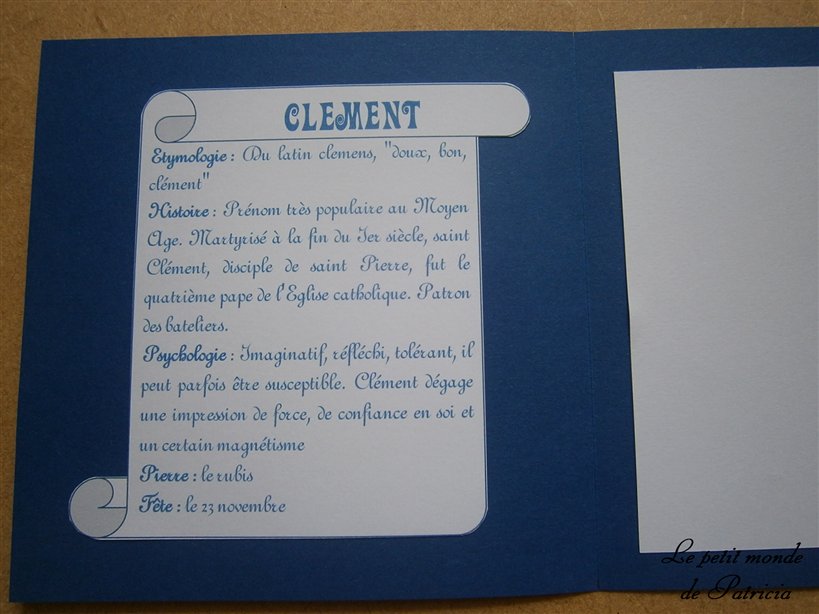 CLEMENT
Etymologie : Du latin clemens, "doux, bon,
clément"
Histoire : Prénom très populaire au Moyen
Age. Martyrisé à la fin du Ier siècle, saint
Clément, disciple de saint Pierre, fut le
quatrième pape de l'Eglise catholique. Patron
des bateliers.
Psychologie : Imaginatif, réfléchi, tolérant, il
peut parfois être susceptible. Clément dégage
une impression de force, de confiance en soi et
un certain magnétisme
Pierre : le rubis
Fête : le 23 novembre
Le petit monde
de Patricia